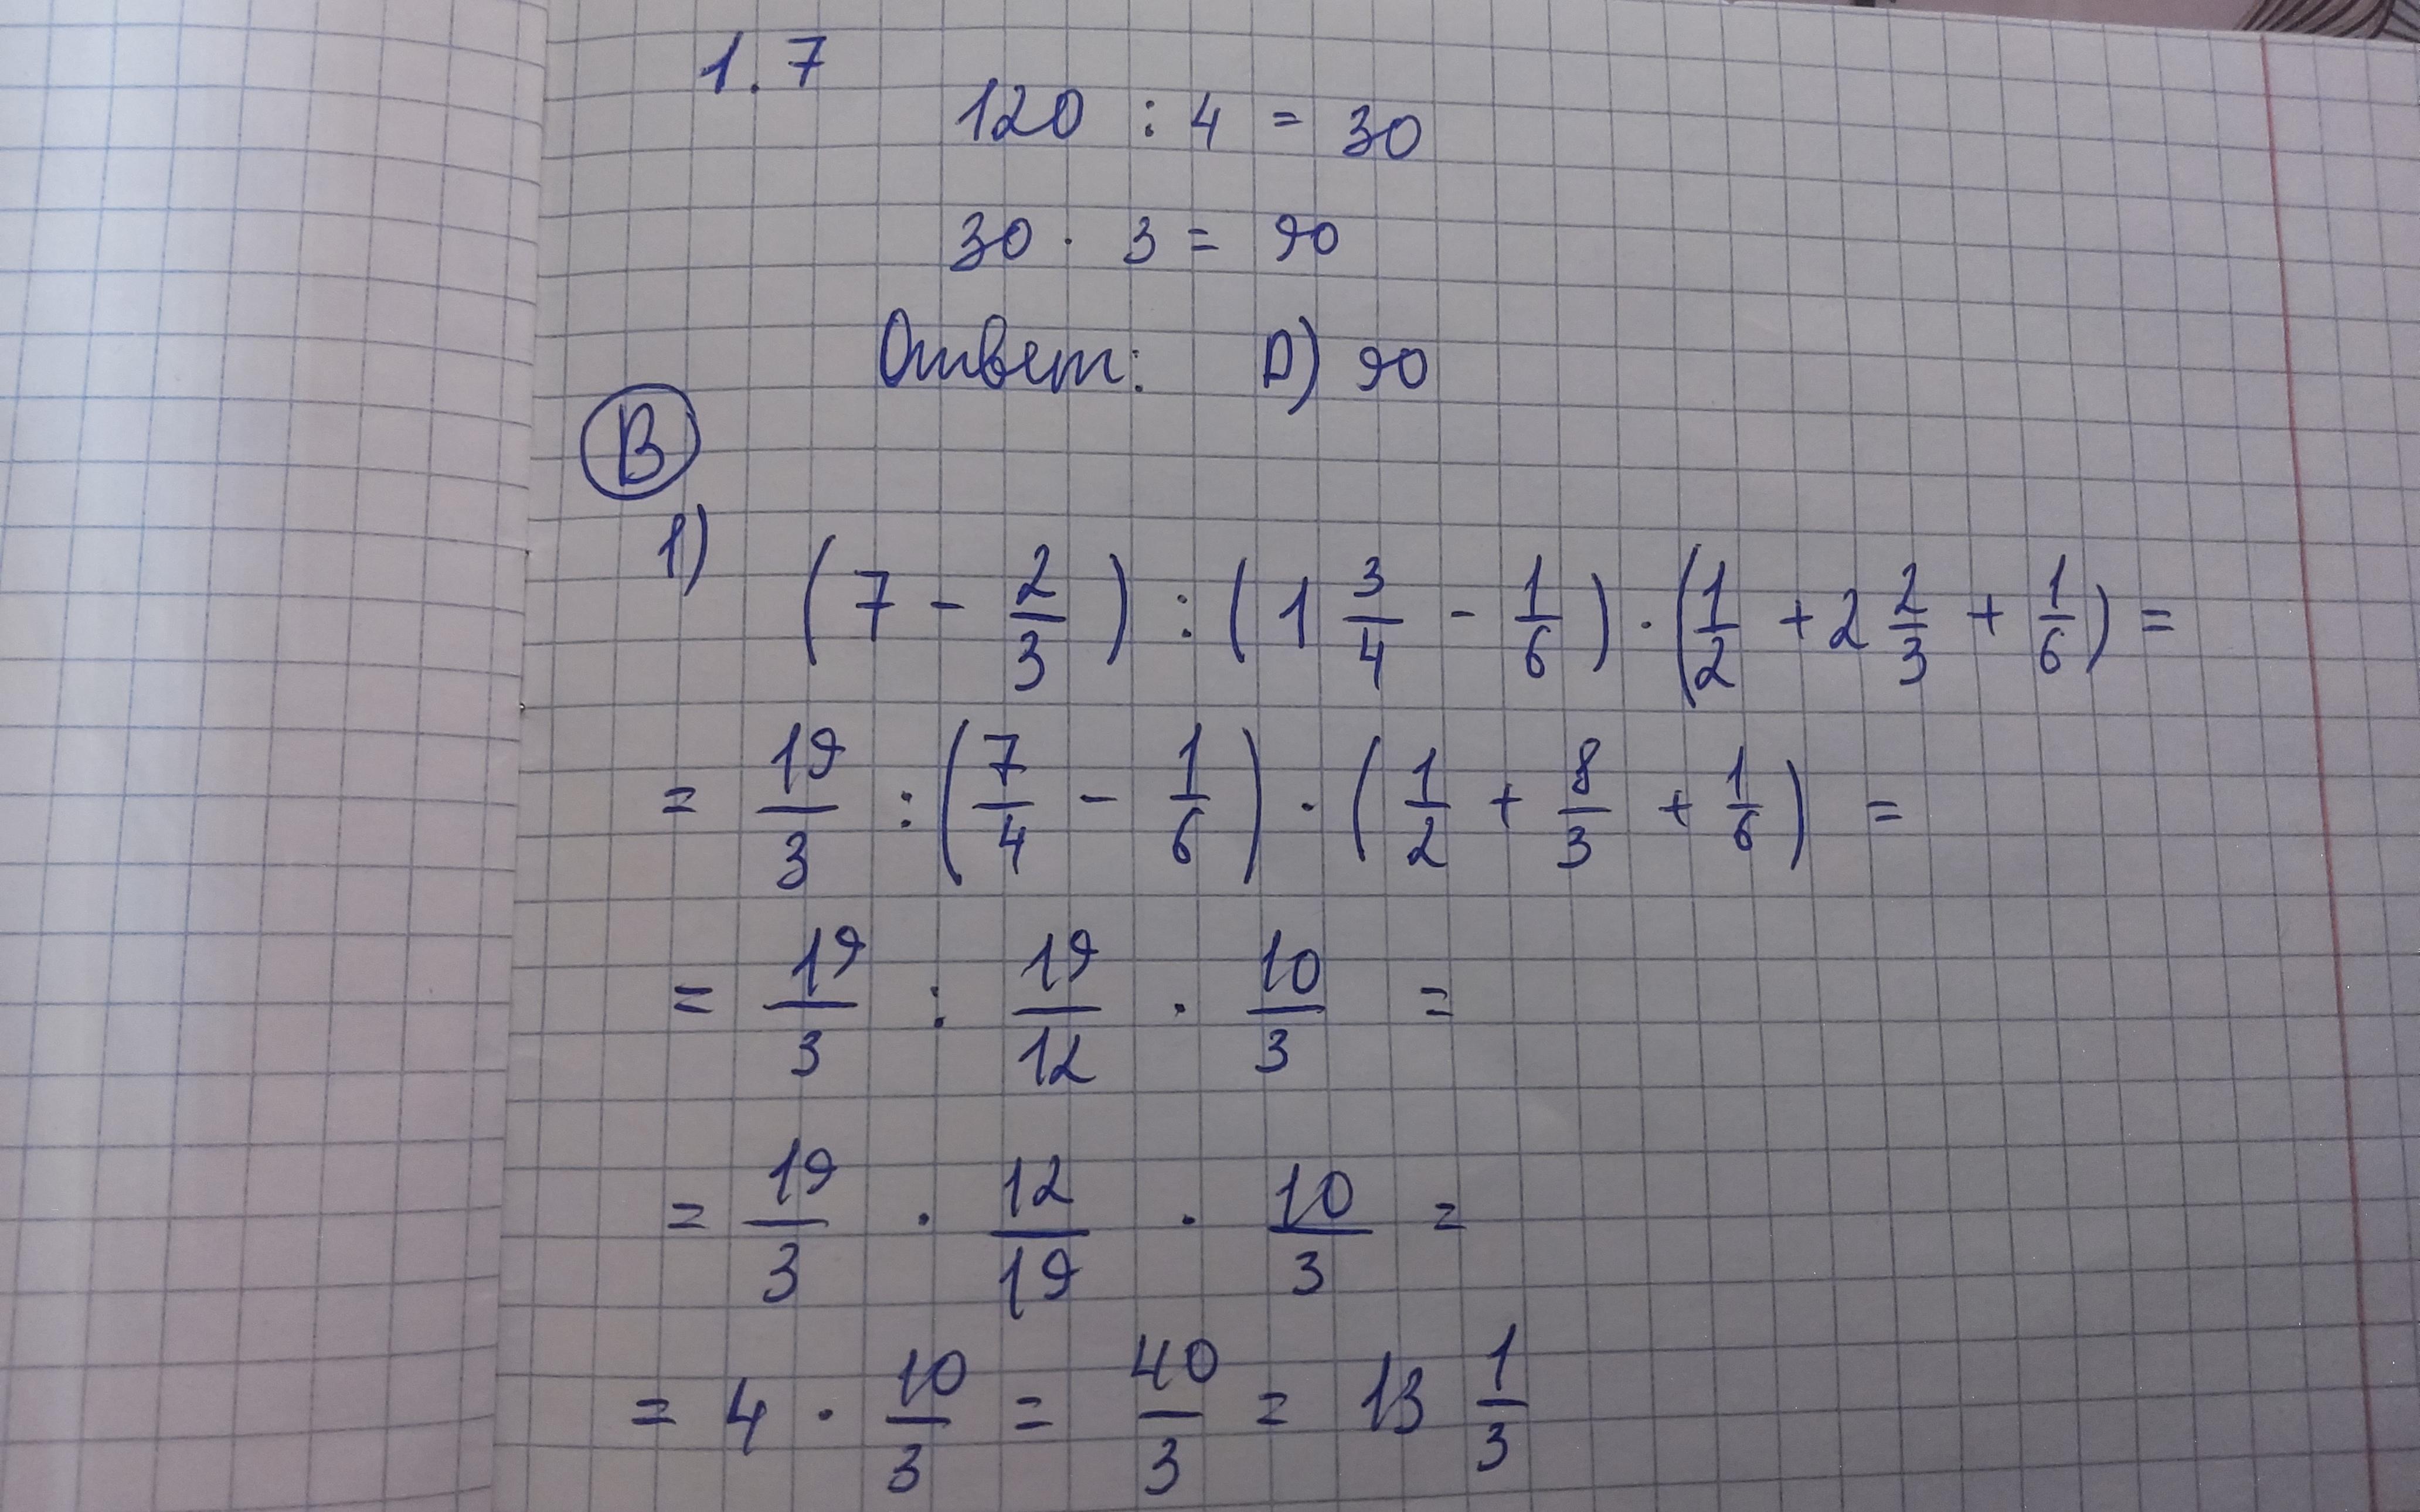 1.7
120 : 4 = 30
30 · 3 = 90
Ответ: D) 90
B
1) (7 - 2/3) : (1 3/4 - 1/6) · (1/2 + 2 2/3 + 1/6) =
= 19/3 : (7/4 - 1/6) · (1/2 + 8/3 + 1/6) =
= 19/3 : 19/12 · 10/3 =
= 19/3 · 12/19 · 10/3 =
= 4 · 10/3 = 40/3 = 13 1/3